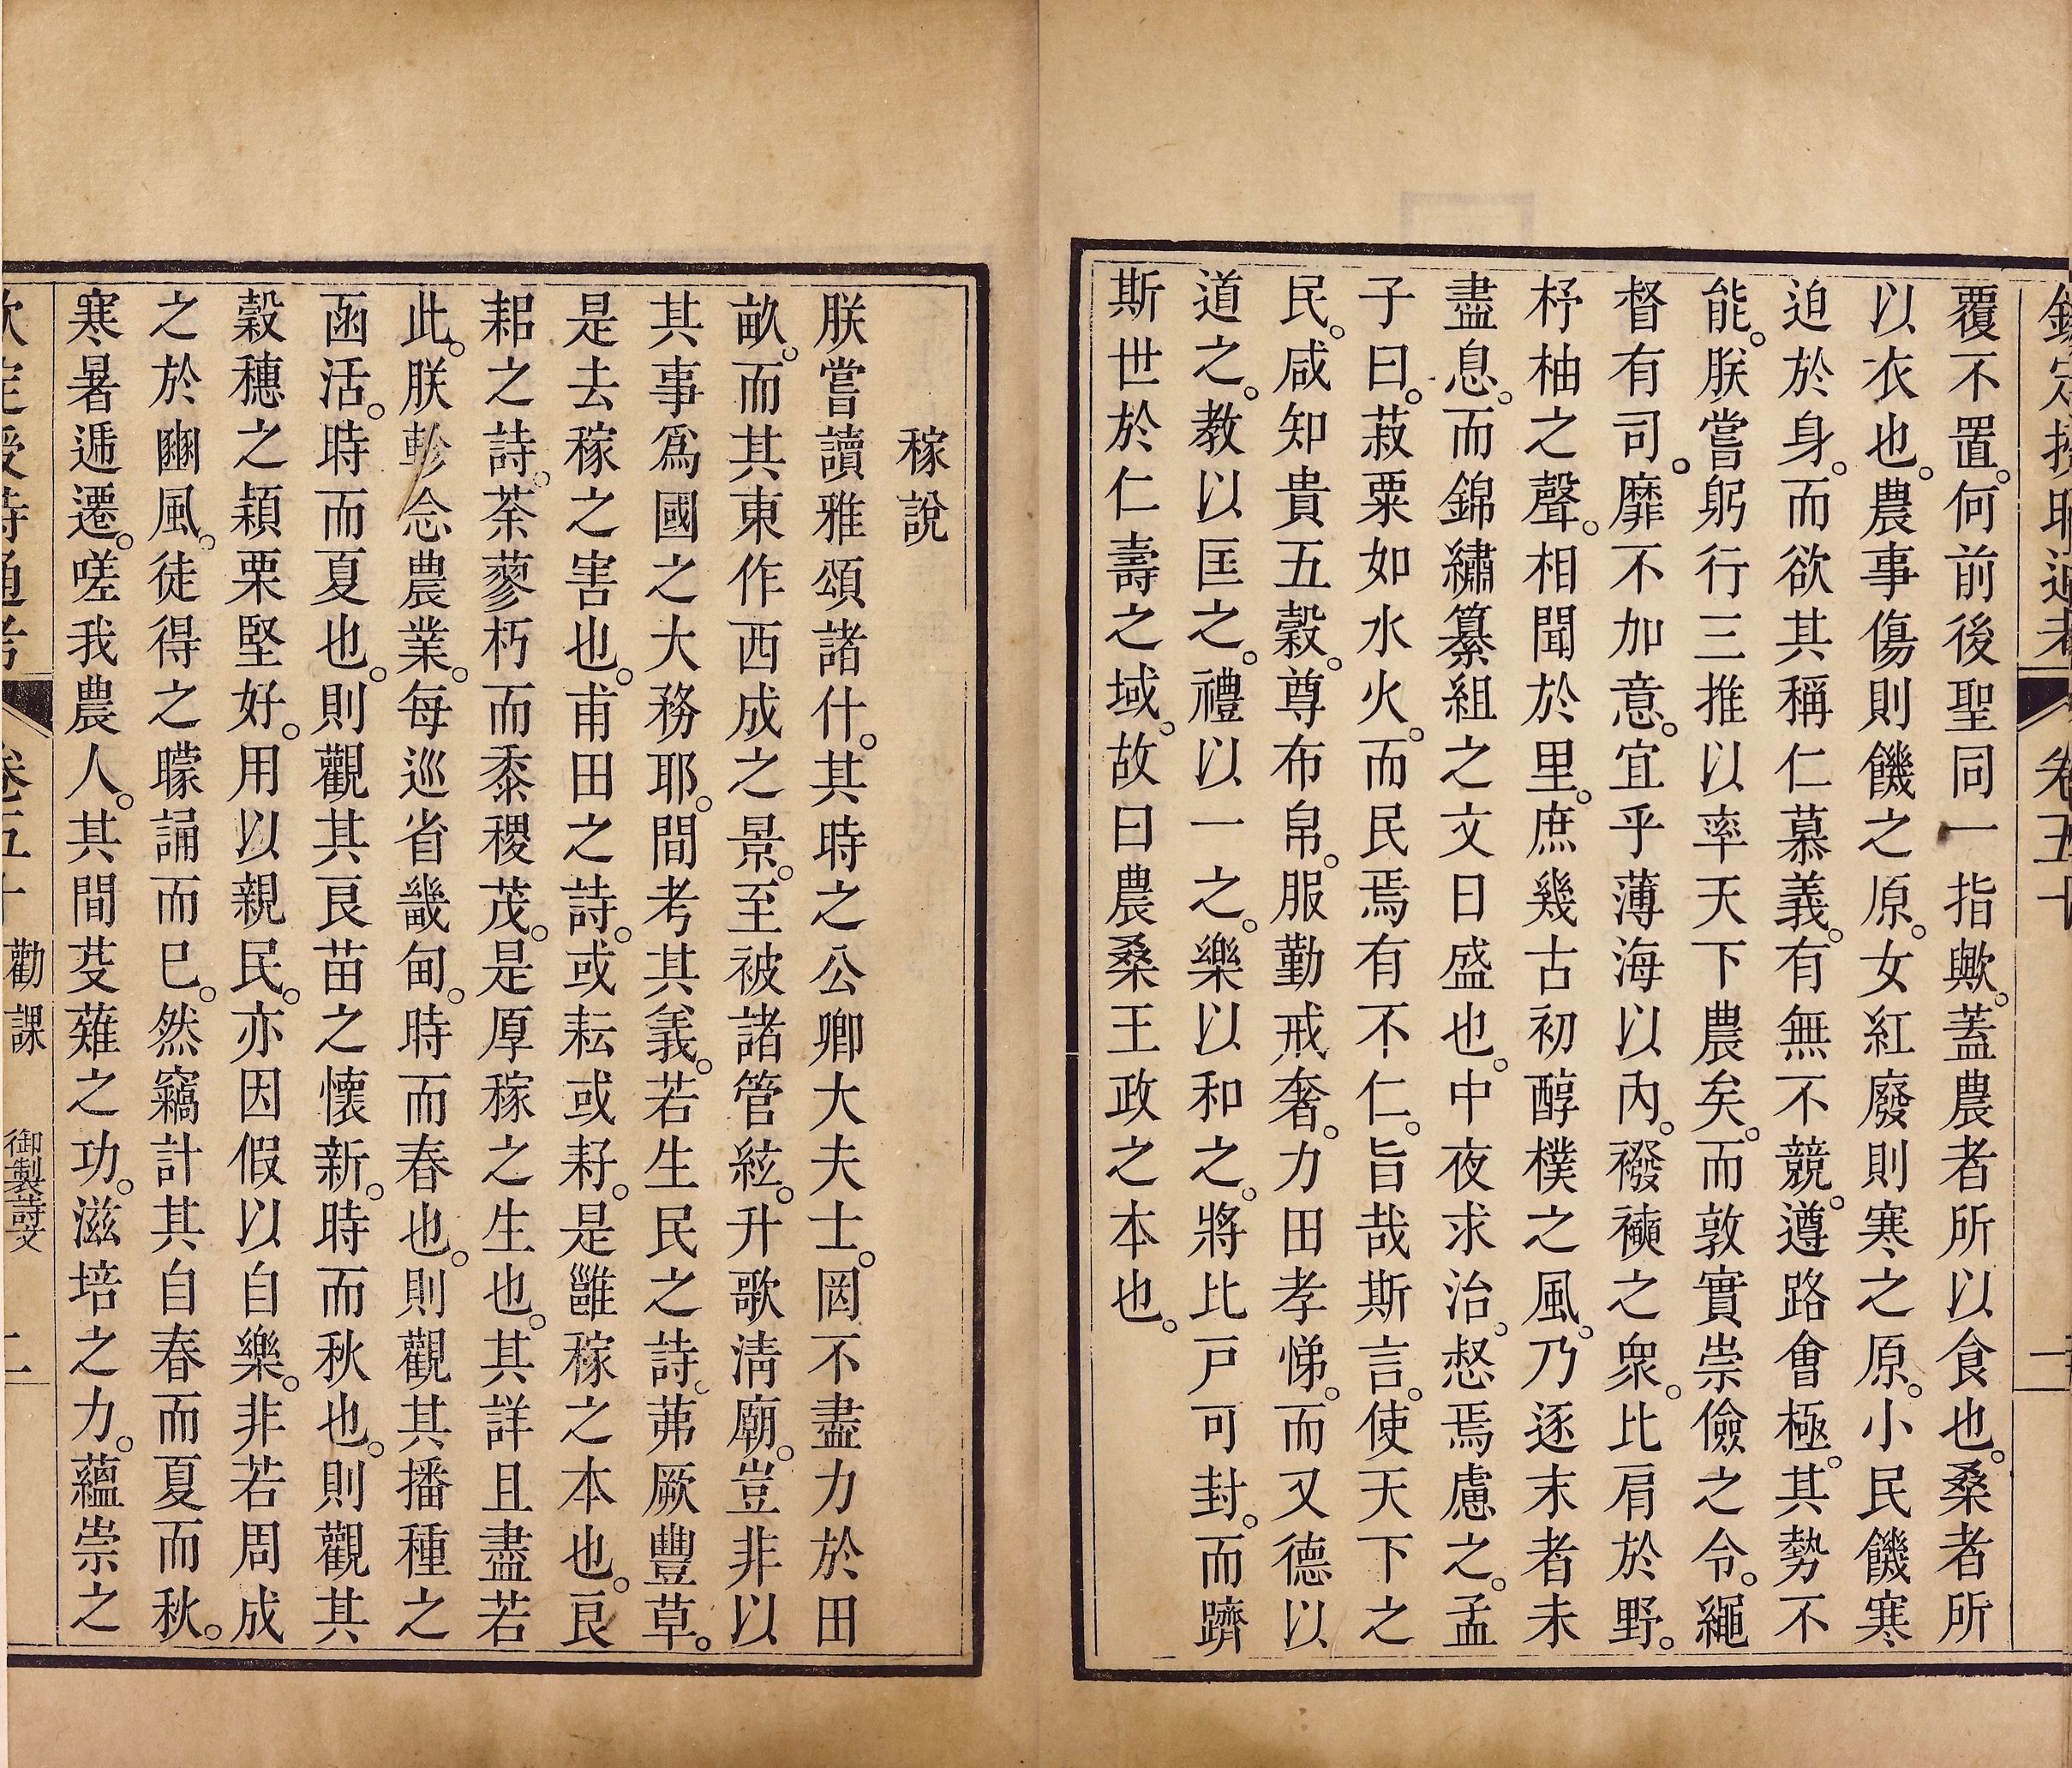 欽定授時通考 卷五十 一
覆不置。何前後聖同一指歟。蓋農者所以食也。桑者所
以衣也。農事傷則饑之原。女紅廢則寒之原。小民饑寒
迫於身。而欲其稱仁慕義。有無不競。遵路會極。其勢不
能。朕嘗躬行三推以率天下農矣。而敦實崇儉之令。繩
督有司。靡不加意。宜乎薄海以內。襏襫之衆。比肩於野。
杼柚之聲。相聞於里。庶幾古初醇樸之風。乃逐末者未
盡息。而錦繡纂組之文日盛也。中夜求治。惄焉慮之。孟
子曰。菽粟如水火。而民焉有不仁。旨哉斯言。使天下之
民。咸知貴五穀。尊布帛。服勤戒奢。力田孝悌。而又德以
道之。教以匡之。禮以一之。樂以和之。將比戸可封。而躋
斯世於仁壽之域。故曰農桑王政之本也。
稼說
朕嘗讀雅頌諸什。其時之公卿大夫士。罔不盡力於田
畝。而其東作西成之景。至被諸管絃。升歌淸廟。豈非以
其事爲國之大務耶。間考其義。若生民之詩。茀厥豐草。
是去稼之害也。甫田之詩。或耘或耔。是雝稼之本也。良
耜之詩。荼蓼朽而黍稷茂。是厚稼之生也。其詳且盡若
此。朕軫念農業。每巡省畿甸。時而春也。則觀其播種之
函活。時而夏也。則觀其良苗之懷新。時而秋也。則觀其
穀穗之穎栗堅好。用以親民。亦因假以自樂。非若周成
之於豳風。徒得之矇誦而已。然竊計其自春而夏而秋。
寒暑遞遷。嗟我農人。其間芟薙之功。滋培之力。蘊崇之
欽定授時通考 卷五十 勸課 御製詩文 二